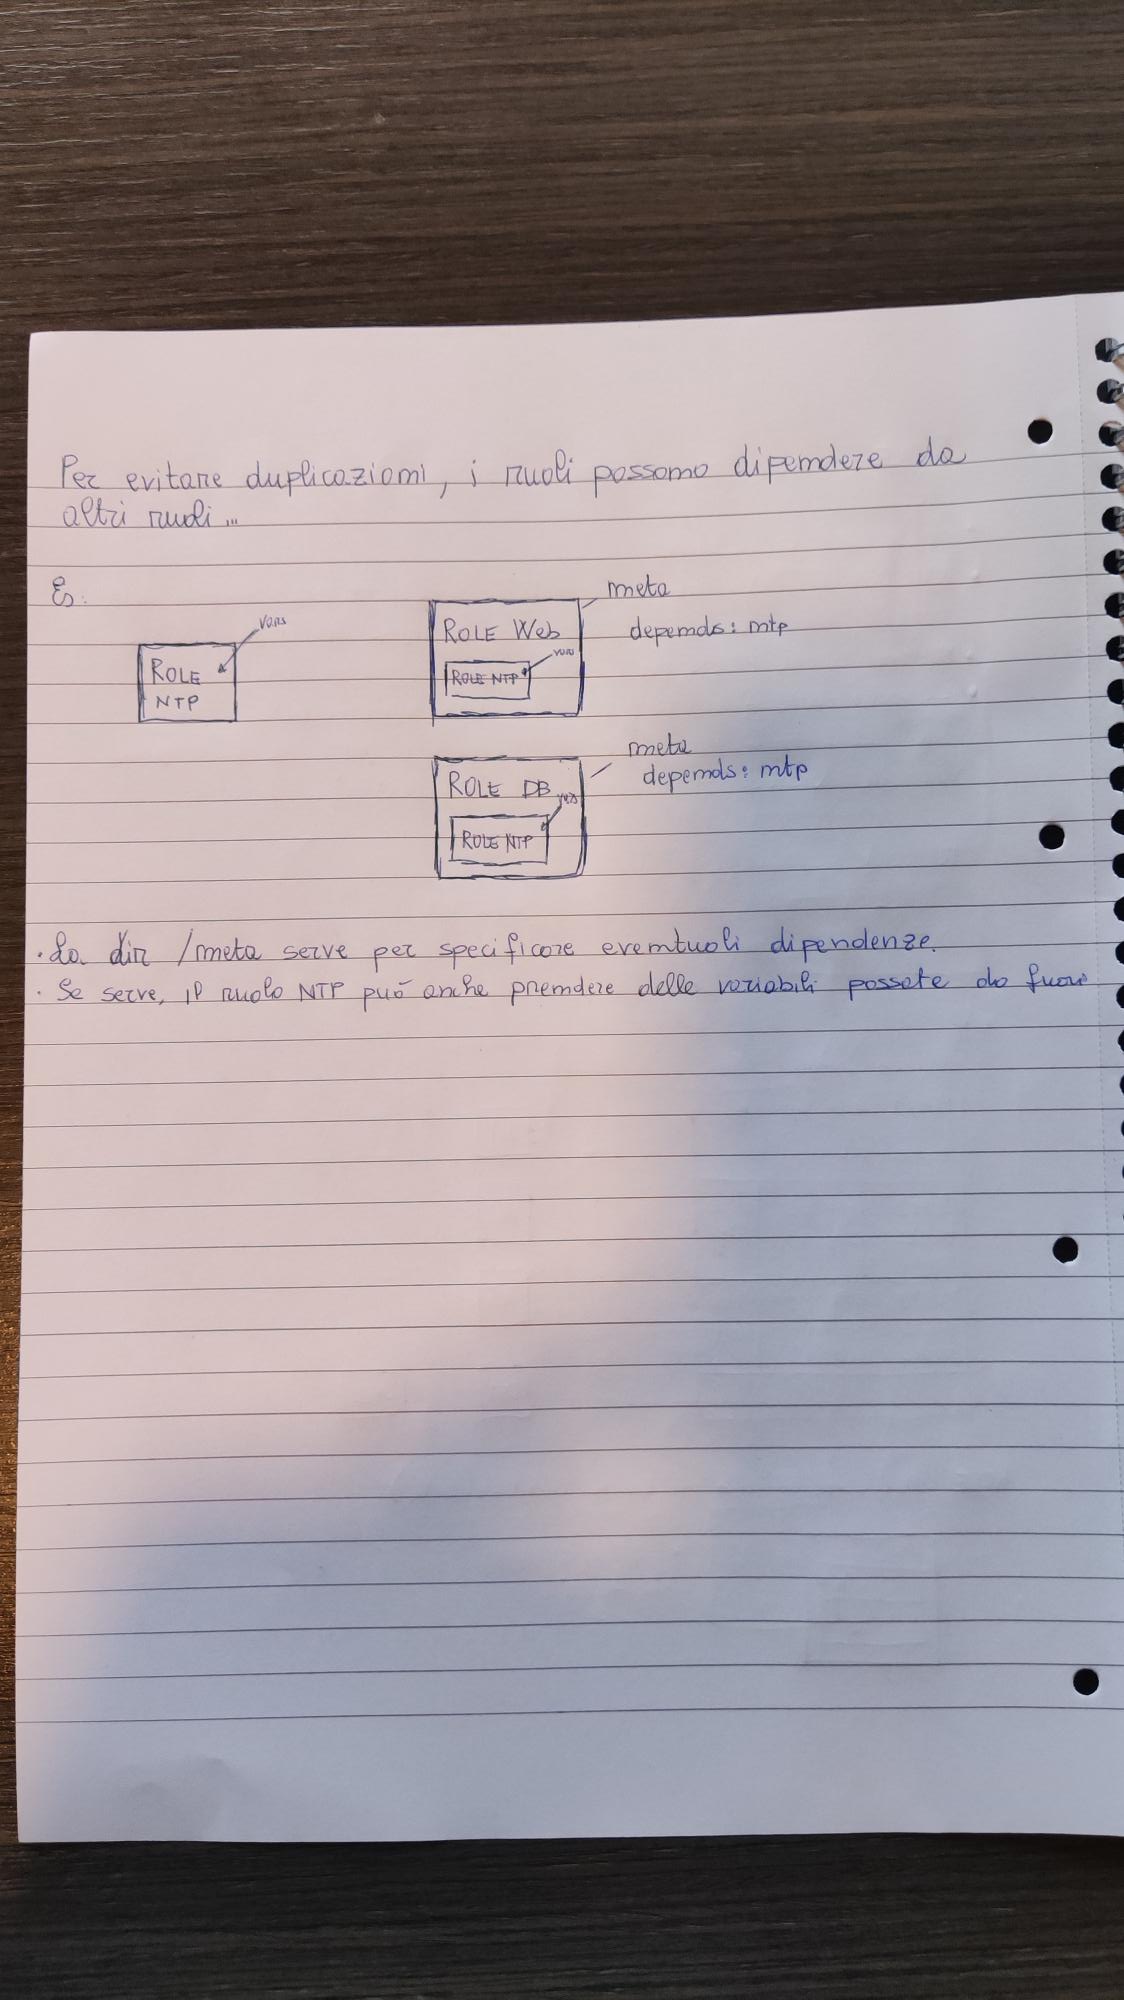 Per evitare duplicazioni, i ruoli possono dipendere da
altri ruoli...
Es.
vars
ROLE
NTP
meta
ROLE Web
depends: ntp
vars
ROLE NTP
meta
depends: ntp
ROLE DB
vars
ROLE NTP
· La dir /meta serve per specificare eventuali dipendenze.
· Se serve, il ruolo NTP può anche prendere delle variabili passate da fuori